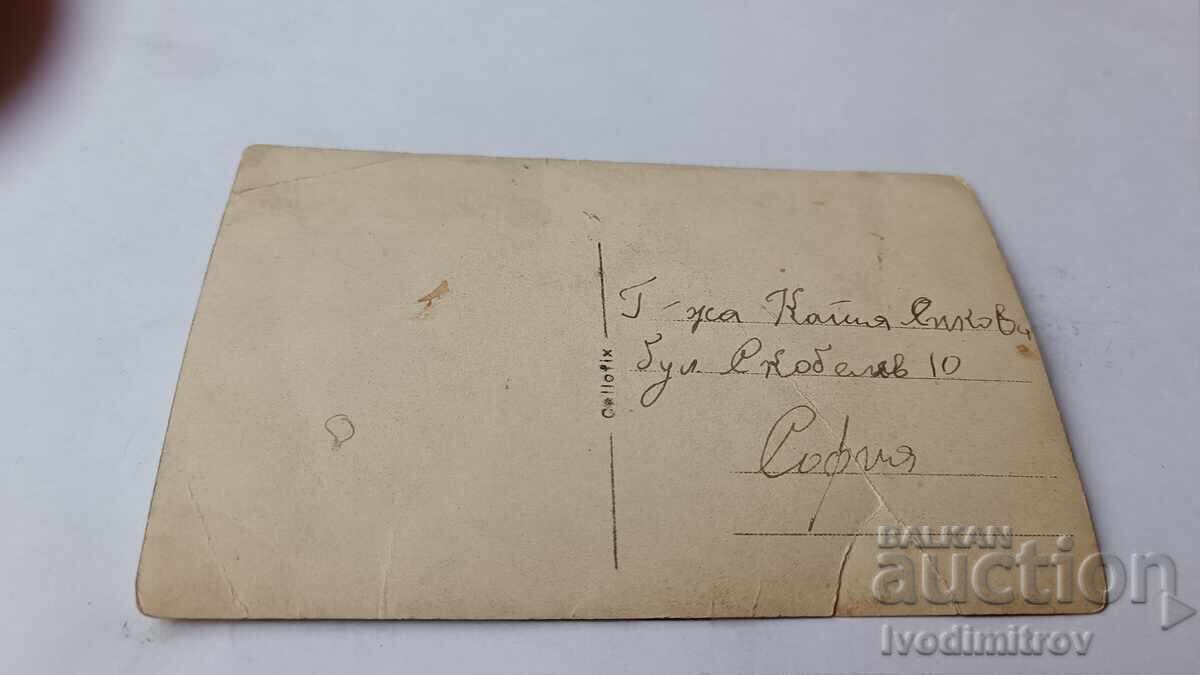 Cellofix
Г-жа Катя Янкова
бул Скобелев 10
София
BALKAN
auction
Ivodimitrov